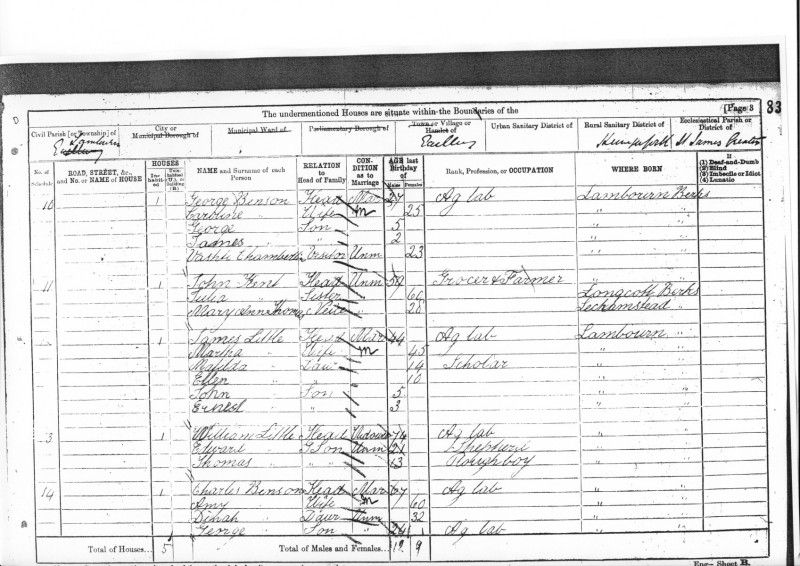 [Page 3
83
D
The undermentioned Houses are situate within the Boundaries of the
Civil Parish [or Township] of
Lambourn
City or Municipal Borough of
Municipal Ward of
Parliamentary Borough of
Town or Village or Hamlet of
Urban Sanitary District of
Rural Sanitary District of
Ecclesiastical Parish or District of
St James
No. of Schedule
ROAD, STREET, &c., and No. or NAME of HOUSE
HOUSES
NAME and Surname of each Person
RELATION to Head of Family
CONDITION as to Marriage
AGE last Birthday of
Males
Females
Rank, Profession, or OCCUPATION
WHERE BORN
If
(1) Deaf-and-Dumb
(2) Blind
(3) Imbecile or Idiot
(4) Lunatic
10 1 George Benson Head Mar 27 Ag lab Lambourn Berks
Caroline " Wife m 25 "
George " Son 5 "
James " " 2 "
Vashti Chamberlin Visitor Unm 23 "
11 1 John Kent Head Unm 59 Grocer & Farmer " "
Julia " Sister " 60 Longcott Berks
Mary Ann Niece " 20 Leckhamstead "
1 James Little Head Mar 44 Ag lab Lambourn "
Martha " Wife m 45 "
Matilda " Daur 14 Scholar "
Ellen " " 10 "
John " Son 5 "
Ernest " " 3 "
3 1 William Little Head Widower 74 Ag lab "
Edward " G Son Unm 21 Shepherd "
Thomas " " " 13 Ploughboy "
14 1 Charles Benson Head Mar 67 Ag lab "
Amy " Wife m 60 "
Dinah " Daur Unm 32 "
George " Son " 24 Ag lab "
Total of Houses... 5
Total of Males and Females... 9
Eng—Sheet B.